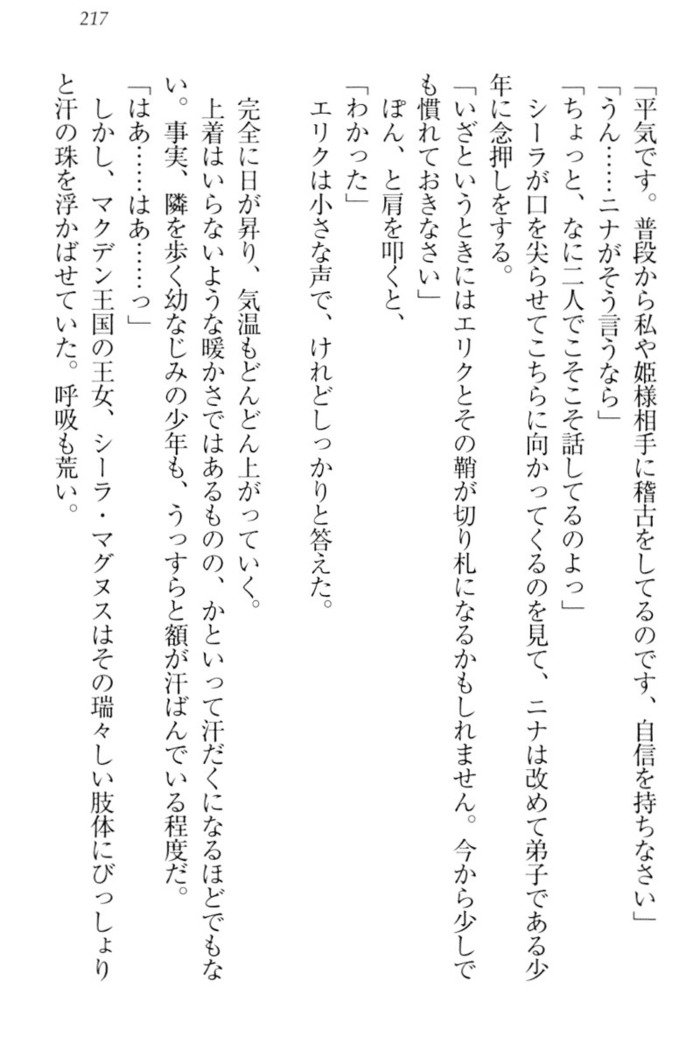 217
「平気です。普段から私や姫様相手に稽古をしてるのです、自信を持ちなさい」
「うん……ニナがそう言うなら」
「ちょっと、なに二人でこそこそ話してるのよっ」
　シーラが口を尖らせてこちらに向かってくるのを見て、ニナは改めて弟子である少
年に念押しをする。
「いざというときにはエリクとその鞘が切り札になるかもしれません。今から少しで
も慣れておきなさい」
　ぽん、と肩を叩くと、
「わかった」
　エリクは小さな声で、けれどしっかりと答えた。
　完全に日が昇り、気温もどんどん上がっていく。
　上着はいらないような暖かさではあるものの、かといって汗だくになるほどでもな
い。事実、隣を歩く幼なじみの少年も、うっすらと額が汗ばんでいる程度だ。
「はあ……はあ……っ」
　しかし、マクデン王国の王女、シーラ・マグヌスはその瑞々しい肢体にびっしょり
と汗の珠を浮かばせていた。呼吸も荒い。